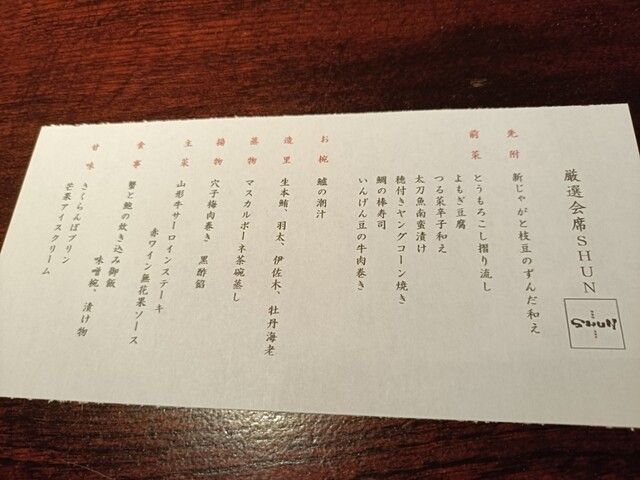 厳選会席SHUN
先附
新じゃがと枝豆のずんだ和え
前菜
とうもろこし摺り流し
よもぎ豆腐
つる菜辛子和え
太刀魚南蛮漬け
穂付きヤングコーン焼き
鯛の棒寿司
いんげん豆の牛肉巻き
お椀
鱸の潮汁
造里
生本鮪、羽太、伊佐木、牡丹海老
蒸物
マスカルポーネ茶碗蒸し
揚物
穴子梅肉巻き 黒酢餡
主菜
山形牛サーロインステーキ
赤ワイン無花果ソース
食事
蟹と鮑の炊き込み御飯
味噌椀、漬け物
甘味
さくらんぼプリン
芒果アイスクリーム